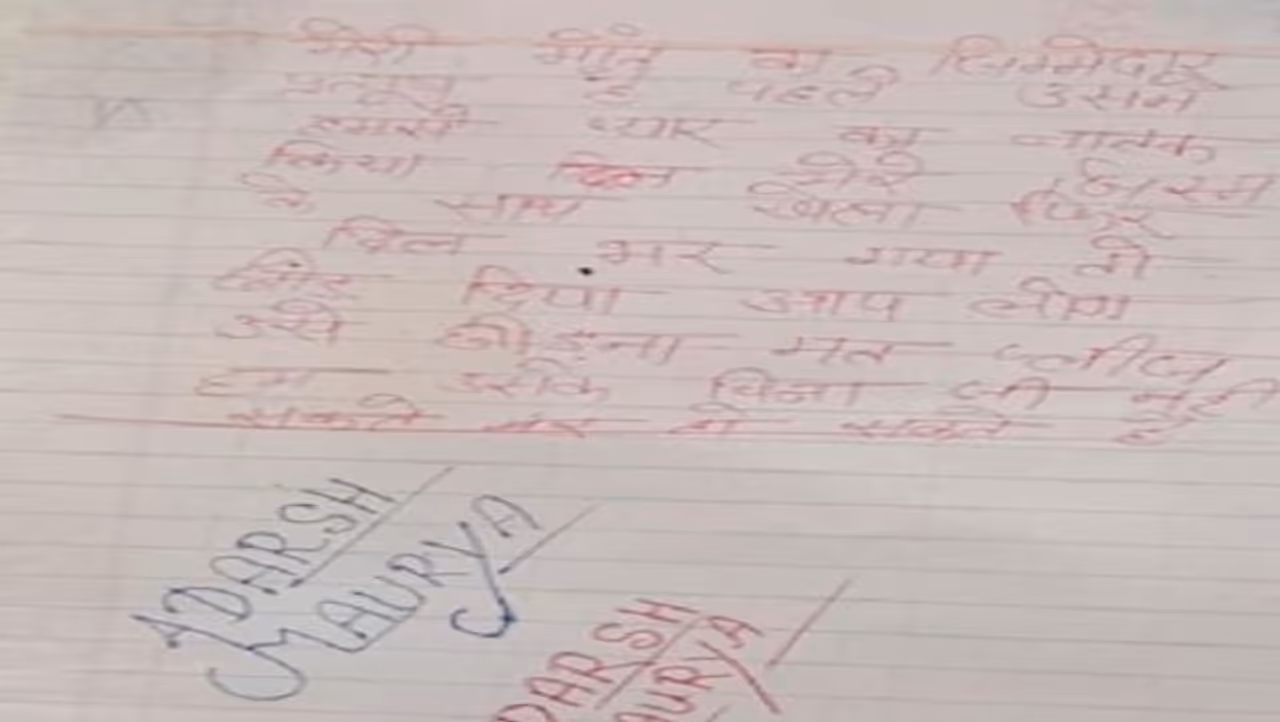 मेरी मौत का जिम्मेदार
है पहले उसने
हमसे प्यार का नाटक
किया मेरे जिस्म
के साथ खेला फिर
दिल भर गया तो
छोड़ दिया आप लोग
उसे छोड़ना मत प्लीज
हम उसके बिना जी नही
सकते मर तो सकते है
ADARSH
MAURYA
DARSH
AURYA